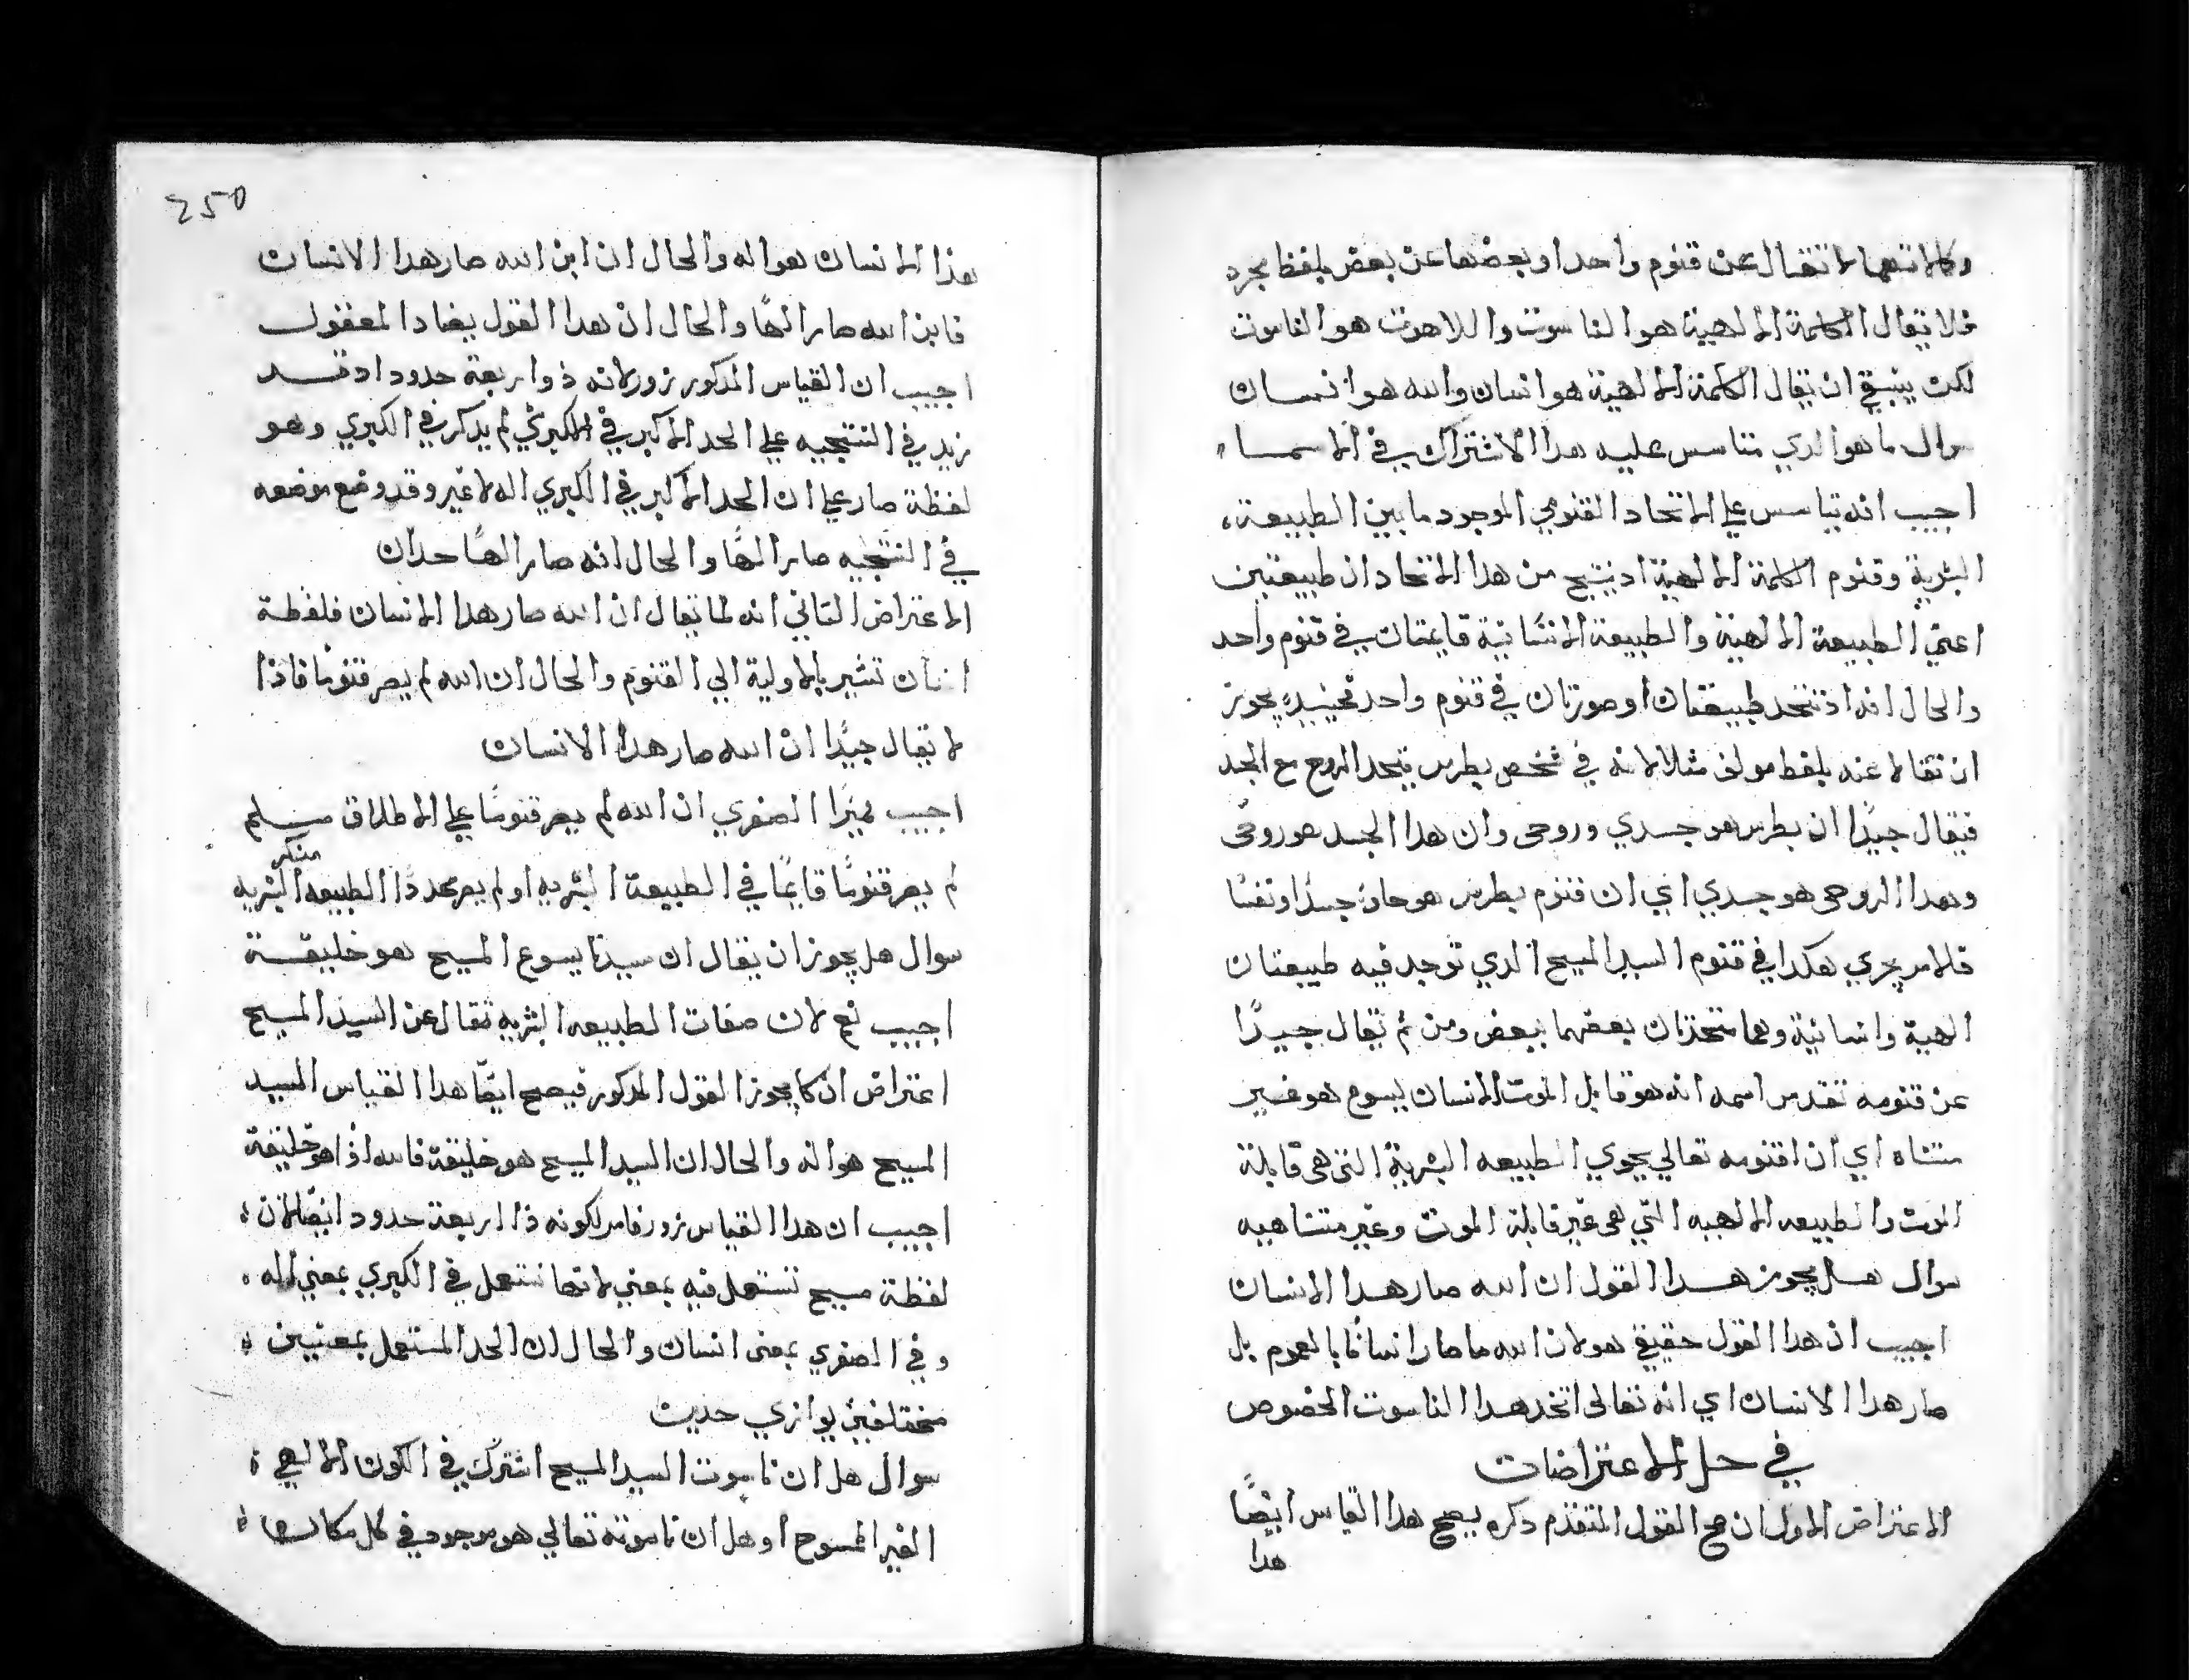 وكلاتهما لا تقال عن قنوم واحد او بعضها عن بعض بلفظ مجرد
فلا يقال الكلمة الالهية هو الناسوت واللاهوت هو الناسوت
لكن ينبغي ان يقال الكلمة الالهية هو انسان والله هو انسان
سوال ما هو الدي تتاسس عليه هدا الاشتراك في الاسما
اجيب انه يتاسس علي الاتحاد القنومي الموجود ما بين الطبيعة
البشرية وقنوم الكلمة الالهية اد ينتج من هدا الاتحاد ان طبيعتين
اعني الطبيعة الالهية والطبيعة الانسانية قايمتان في قنوم واحد
والحال انه اذ تتحد طبيعتان او صورتان في قنوم واحد فحينيدٍ يجوز
ان تقالا عنه بلفظ مولف مثلا لانه في شخص بطرس تتحد الروح مع الجسد
فيقال جيدًا ان بطرس هو جسدي وروحي وان هدا الجسد هو روحي
وهدا الروحي هو جسدي اي ان قنوم بطرس هو حاوٍ جسدًا ونفسًا
فلامر يجري هكدا في قنوم السيد المسيح الدي توجد فيه طبيعتان
الهية وانسانية وهما متحدتان بعضهما ببعض ومن ثم يقال جيدًا
عن قنومه تقدس اسمه انه هو قابل الموت الانسان يسوع هو غير
متناه اي ان اقنومه تعالي يحوي الطبيعه البشرية التي هي قابلة
الموت والطبيعه الالهيه التي هي غير قابلة الموت وغير متناهيه
سوال هل يجوز هدا القول ان الله صار هدا الانسان
اجيب ان هدا القول حقيقي هو لان الله ما صار انسانًا بالعموم بل
صار هدا الانسان اي انه تعالى اتخد هدا الناسوت المخصوص
في حل الاعتراضات
الاعتراض الاول ان صح القول المتقدم دكره يصح هدا القياس ايضًا
هدا
250
هذا الانسان هو اله والحال ان ابن الله صار هدا الانسان
فابن الله صار الهًا والحال ان هدا القول يضاد المعقول
اجيب ان القياس المدكور زور لانه ذو اربعة حدود اد قد
زيد في النتيجيه علي الحد الاكبر في الكبري لم يدكر في الكبري وهو
لفظة صار علي ان الحد الاكبر في الكبري اله لا غير وقد وضع موضعه
في النتيجيه صار الهًا والحال انه صار الهًا حدان
الاعتراض التاني انه لما يقال ان الله صار هدا الانسان فلفظة
انسان تشير بالاولية الي القنوم والحال ان الله لم يصر قنومًا فاذا
لا يقال جيدًا ان الله صار هدا الانسان
اجيب مميزًا الصغري ان الله لم يصر قنومًا علي الاطلاق مسلم
منكر
لم يصر قنومًا قايمًا في الطبيعة البشريه او لم يصر محددًا الطبيعه البشريه
سوال هل يجوز ان يقال ان سيدنا يسوع المسيح هو خليقة
اجيب نعم لان صفات الطبيعه البشريه تقال عن السيد المسيح
اعتراض ان كان يجوز القول المدكور فيصح ايضًا هدا القياس السيد
المسيح هو اله والحال ان السيد المسيح هو خليقة فالله اذًا هو خليقة
اجيب ان هدا القياس زور فاسد لكونه ذا اربعة حدود ايضًا لان
لفظة مسيح تستعمل فيه بمعني لانها تستعمل في الكبري بمعني اله
وفي الصغري بمعنى انسان والحال ان الحد المستعمل بمعنيين
مختلفين يوازي حدين
سوال هل ان ناسوت السيد المسيح اشترك في الكون الالهي
الغير الممسوح او هل ان ناسوته تعالي هو موجود في كل مكان